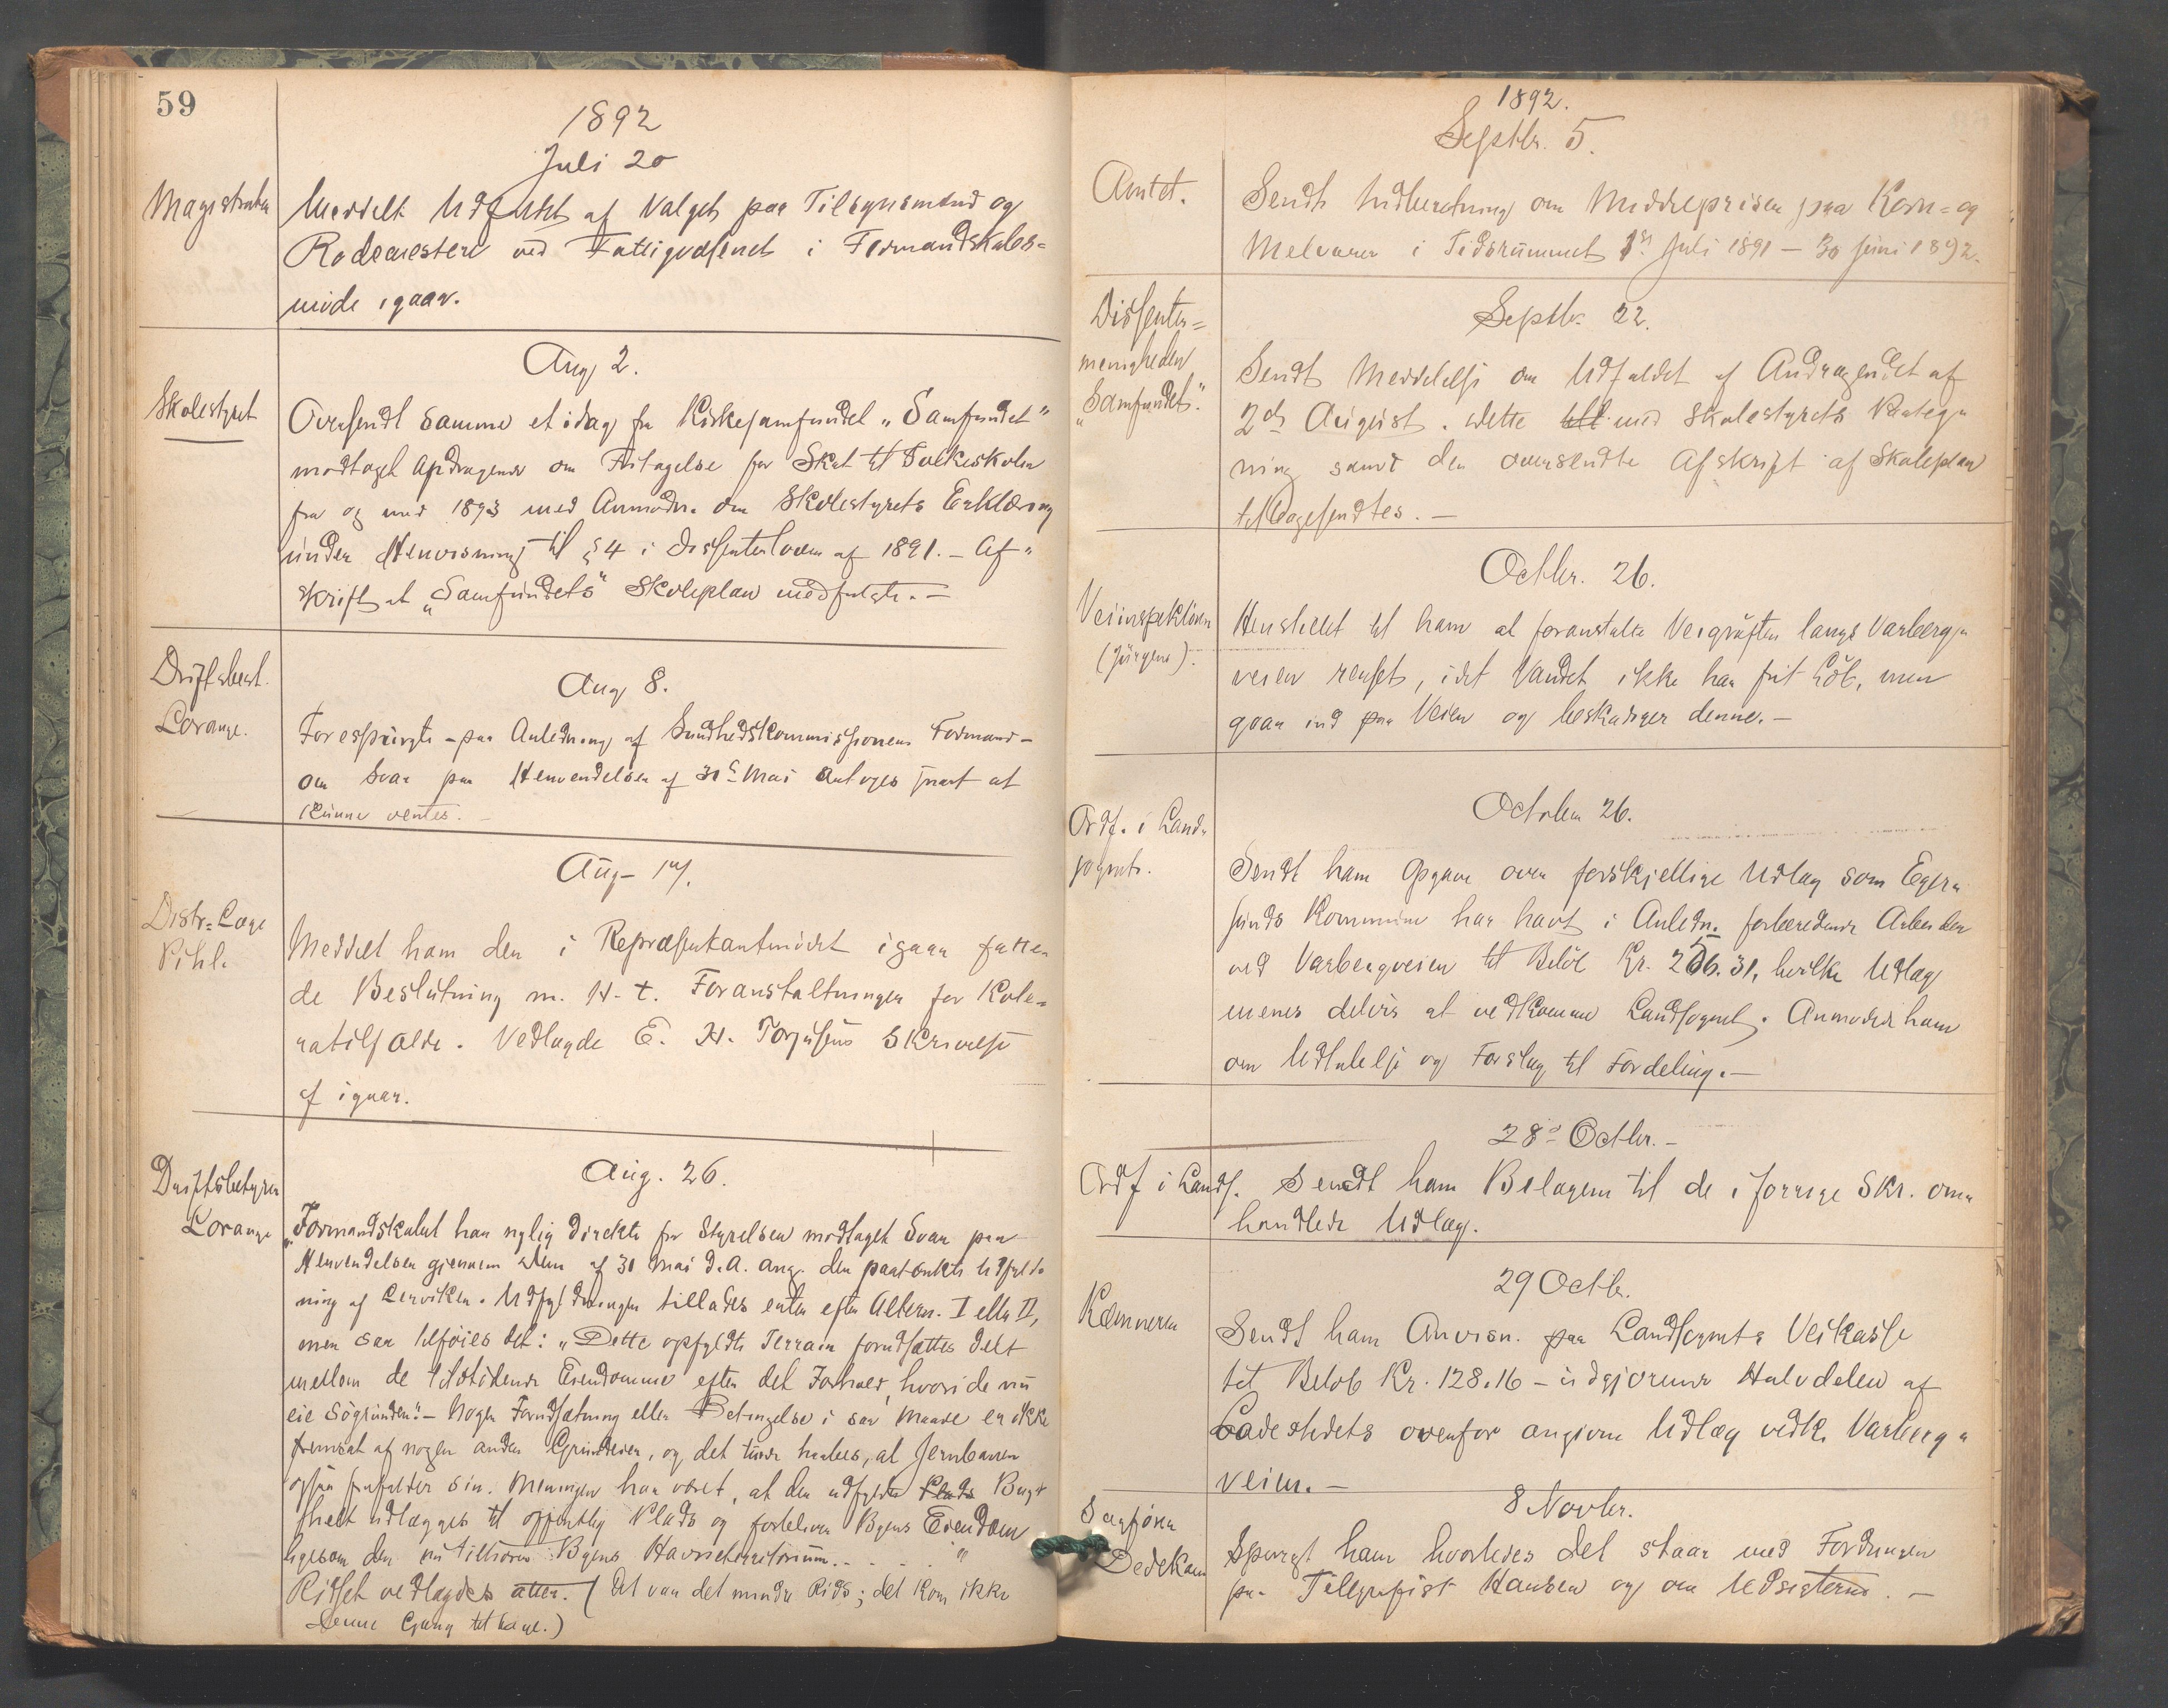 59
1892
Juli 20
Magistraten
Meddelt Udfaldet af Valget paa Tilsynsmænd og
Rodemestere ved Fattigvæsenet i Formandskabs=
møde igaar.
Aug 2.
Skolestyret
Oversendt samme et idag fra Kirkesamfundet „Samfundet"
modtaget Andragende om Fritagelse for Skat til Folkeskolen
fra og med 1893 med Anmodn. om Skolestyrets Erklæring
under Henvisning til § 4 i Dissenterloven af 1891. – Af-
skrift af „Samfundets" Skoleplan medfulgte. –
Driftsbest.
Lorange.
Aug 8.
Forespurgte – paa Anledning af Sundhedskommissionens Formand –
om Svar paa Henvendelsen af 30te Mai antages snart at
kunne ventes. –
Aug 17.
Distr=Læge
Pihl.
Meddelt ham den i Repræsentantmødet igaar fatte-
de Beslutning m. H. t. Foranstaltninger for Kole-
ratilfælde. Vedlagde E. H. Torjusens Skrivelse
af igaar.
Aug. 26.
Driftsbestyrer
Lorange
„Formandskabet har nylig direkte fra Styrelsen modtaget Svar paa
Henvendelsen gjennem Dem af 30 Mai d.A. ang. den paatænkte Udfyld-
ning af Lerviken. Udfyldningen tillades enten efter Altern. I eller II,
men saa tilføies det: „Dette opfyldte Terrain forudsættes delt
mellem de tilstødende Eiendomme efter det Forhold, hvori de nu
eie Søgrunden". – Nogen Forudsætning eller Betingelse i saa Maade er ikke
fremsat af nogen anden Grundeier, og det turde haabes, at Jernbanen
ogsaa frafalder sin. Meningen har været, at den udfyldte Plads Bugt
helt udlægges til offentlig Plads og forbliver Byens Eiendom
ligesom den nu tilhører Byens Havneterritorium. - - - - "
Ridset vedlagdes atter. (Det var det mindre Rids; det kom ikke
denne Gang tilbage.)
1892.
Septbr. 5.
Amtet.
Sendt Indberetning om Middelprisen paa Korn= og
Melvarer i Tidsrummet 1st Juli 1891 – 30 Juni 1892.
Septbr. 22.
Dissenter=
menigheden
„Samfundet".
Sendt Meddelelse om Udfaldet af Andragendet af
2den August. Dette till med Skolestyrets Paateg-
ning samt den oversendte Afskrift af Skoleplan
tilbagesendtes. –
Octbr. 26.
Veiinspektøren
(Jürgens).
Henstillet til ham at foranstalte Veigrøften langs Varberg-
veien renset, idet Vandet ikke har frit Løb, men
gaar ind paa Veien og beskadiger denne. –
October 26.
Ordf. i Land-
sognet.
Sendt ham Opgave over forskjellige Udlæg som Eger-
sunds Kommune har havt i Anledn. forberedende Arbeider
ved Varbergveien til Beløb Kr. 256.31, hvilke Udlæg
menes delvis at vedkomme Landsognet. Anmodede ham
om Udtalelse og Forslag til Fordeling. –
28de Octbr. –
Ordf i Lands.
Sendt ham Bilagene til de i forrige Skr. om-
handlede Udlæg.
29 Octbr.
Kæmneren
Sendt ham Anvisn. paa Landsognets Veikasse
til Beløb Kr. 128.16 – udgjørende Halvdelen af
Ladestedets ovenfor angivne Udlæg vedk. Varberg-
veien. –
8 Novbr.
Sagfører
Dedekam
Spurgt ham hvorledes det staar med Fordringen
paa Telegrafist Hansen og om